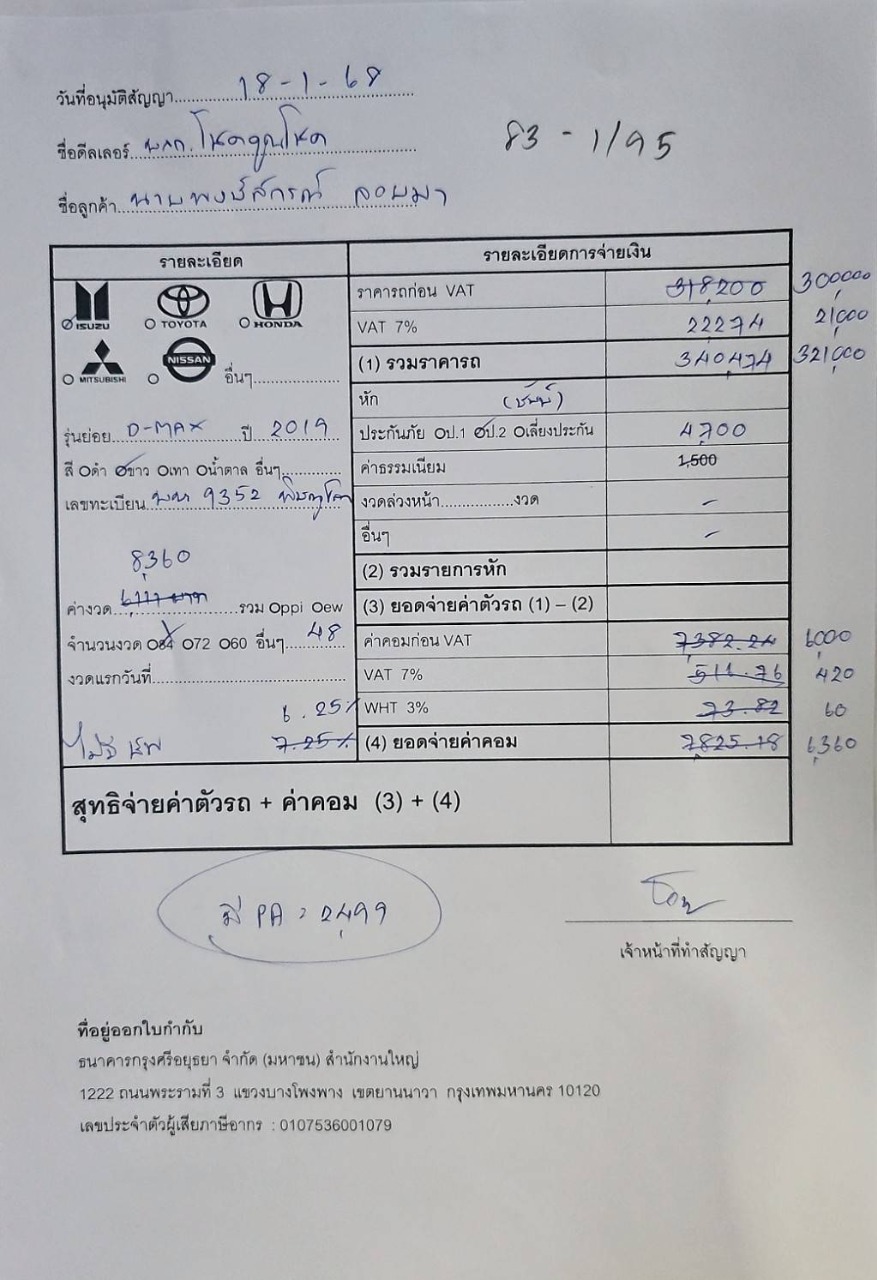 วันที่อนุมัติสัญญา 18-1-68
ชื่อดีลเลอร์ หจก. โชคคูณโชค
83-1/95
ชื่อลูกค้า นายพงษ์สกรณ์
รายละเอียด
รายละเอียดการจ่ายเงิน
ISUZU
TOYOTA
HONDA
MITSUBISHI
NISSAN
อื่นๆ
รุ่นย่อย D-MAX ปี 2019
สี ดำ ขาว เทา น้ำตาล อื่นๆ
เลขทะเบียน 9352 พิษณุโลก
8,360
ค่างวด รวม Oppi Oew
จำนวนงวด O84 O72 O60 อื่นๆ 48
งวดแรกวันที่
6.25%
7.25%
ราคารถก่อน VAT 318,200 300,000
VAT 7% 22274 21,000
(1) รวมราคารถ 340,474 321,000
หัก
ประกันภัย Oป.1 Oป.2 Oเลี่ยงประกัน 4,700
ค่าธรรมเนียม 1,500
งวดล่วงหน้า งวด -
อื่นๆ -
(2) รวมรายการหัก
(3) ยอดจ่ายค่าตัวรถ (1) – (2)
ค่าคอมก่อน VAT 7,382.24 6,000
VAT 7% 516.76 420
WHT 3% 73.82 60
(4) ยอดจ่ายค่าคอม 7,825.18 6,360
สุทธิจ่ายค่าตัวรถ + ค่าคอม (3) + (4)
มี PA = 2,499
เจ้าหน้าที่ทำสัญญา
ที่อยู่ออกใบกำกับ
ธนาคารกรุงศรีอยุธยา จำกัด (มหาชน) สำนักงานใหญ่
1222 ถนนพระรามที่ 3 แขวงบางโพงพาง เขตยานนาวา กรุงเทพมหานคร 10120
เลขประจำตัวผู้เสียภาษีอากร : 0107536001079